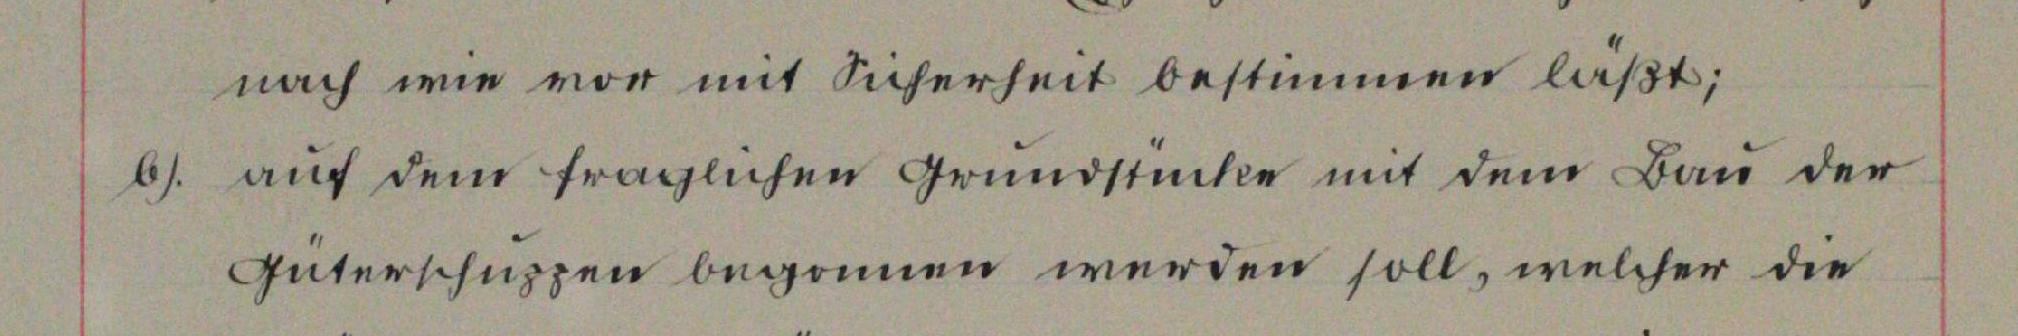 nach wie vor mit Sicherheit bestimmen läßt;
b). auf dem fraglichen Grundstücke mit dem Bau der
Güterschuppen begonnen werden soll, welcher die